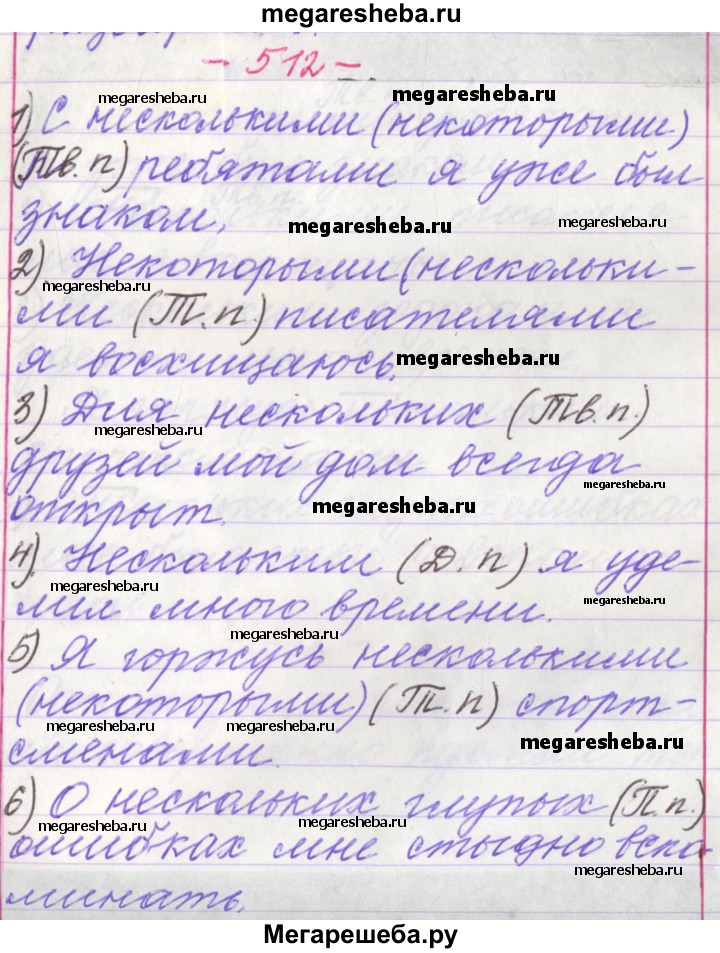 megaresheba.ru
- 512 -
megaresheba.ru
megaresheba.ru
1) С несколькими (некоторыми)
(Тв. п) ребятами я уже был
знаком.
megaresheba.ru
megaresheba.ru
2) Некоторыми (нескольки-
megaresheba.ru
ми (Т. п.) писателями
я восхищаюсь.
megaresheba.ru
3) Для нескольких (Тв. п.)
megaresheba.ru
друзей мой дом всегда
megaresheba.ru
открыт.
megaresheba.ru
4) Нескольким (Д. п) я уде-
megaresheba.ru
лил много времени.
megaresheba.ru
megaresheba.ru
5) Я горжусь несколькими
(некоторыми) (Т. п) спорт-
megaresheba.ru
megaresheba.ru
сменами.
megaresheba.ru
6) О нескольких глупых (П. п.)
megaresheba.ru
megaresheba.ru
ошибках мне стыдно вспо
megaresheba.ru
минать.
Мегарешеба.ру